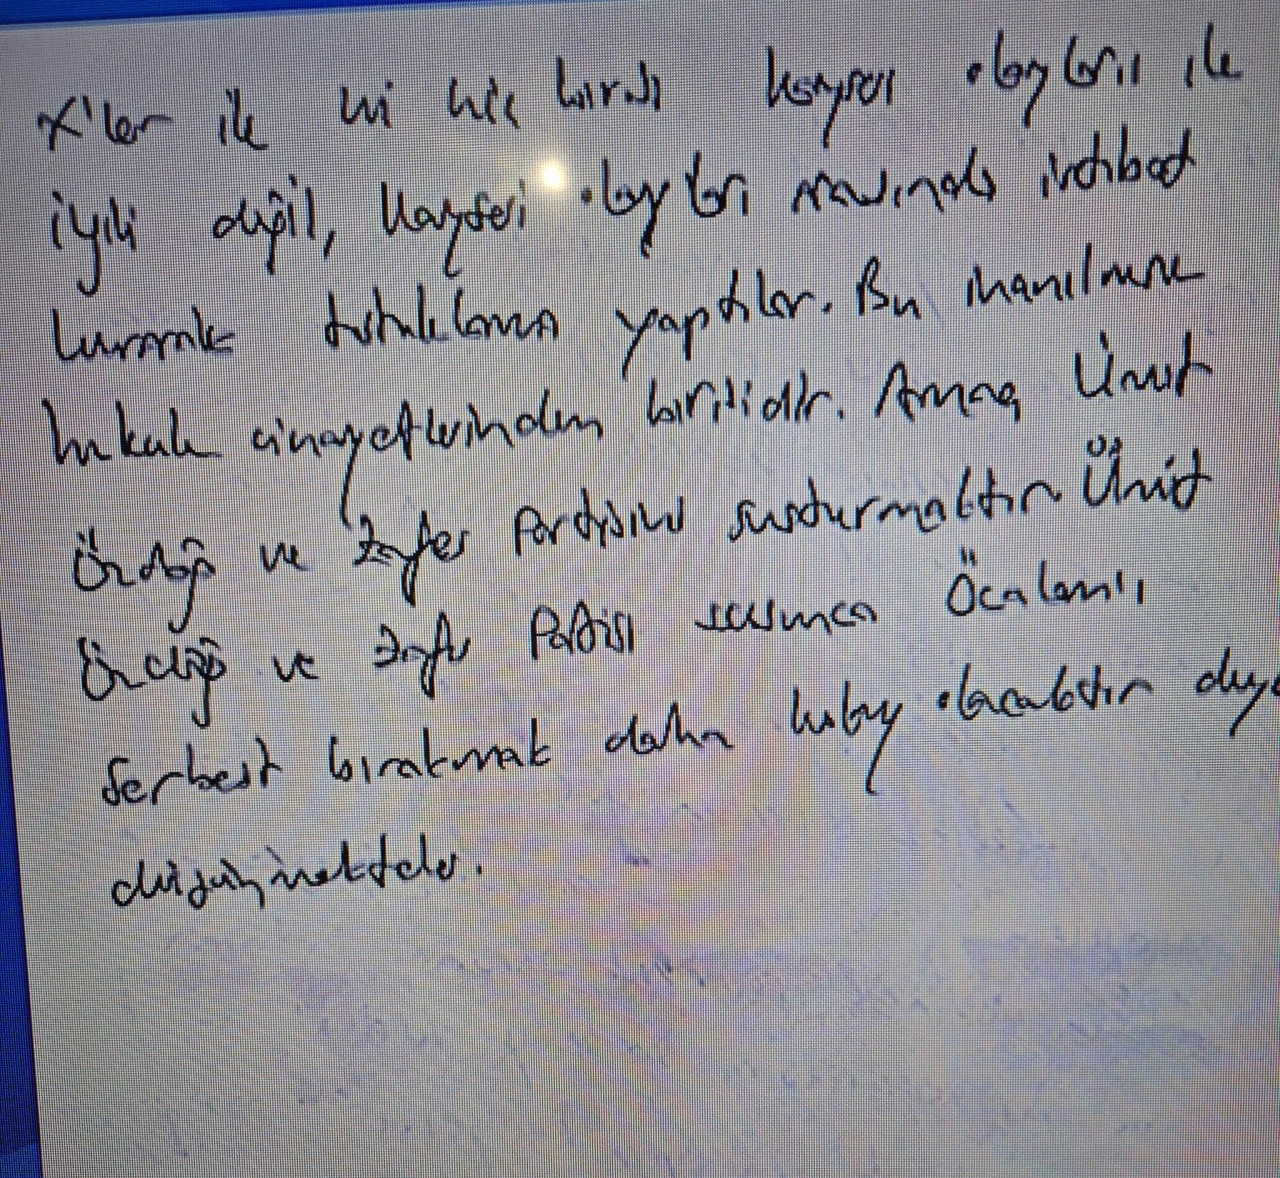 X'ler ile ki hiç birisi Kayseri olayları ile
ilgili değil, Kayseri olayları arasında irtibat
kurarak tutuklama yaptılar. Bu inanılmaz
hukuk cinayetlerinden birisidir. Amaç Ümit
Özdağ ve Zafer Partisini susturmaktır. Ümit
Özdağ ve Zafer Partisi susunca Öcalan'ı
serbest bırakmak daha kolay olacaktır diye
düşünmekteler.